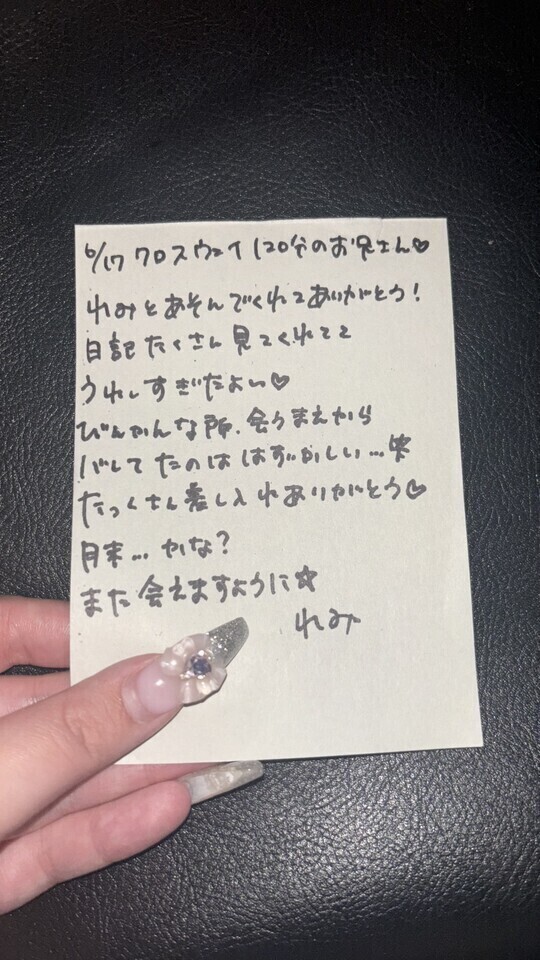 6/17 クロスウェイ 120分のお兄さん♡
れみとあそんでくれてありがとう!
日記たくさん見てくれてて
うれしすぎたよい♡
びんかんな所、会うまえから
バレてたのははずかしい…笑
たっくさん差し入れありがとう♡
月末…かな?
また会えますように☆
れみ